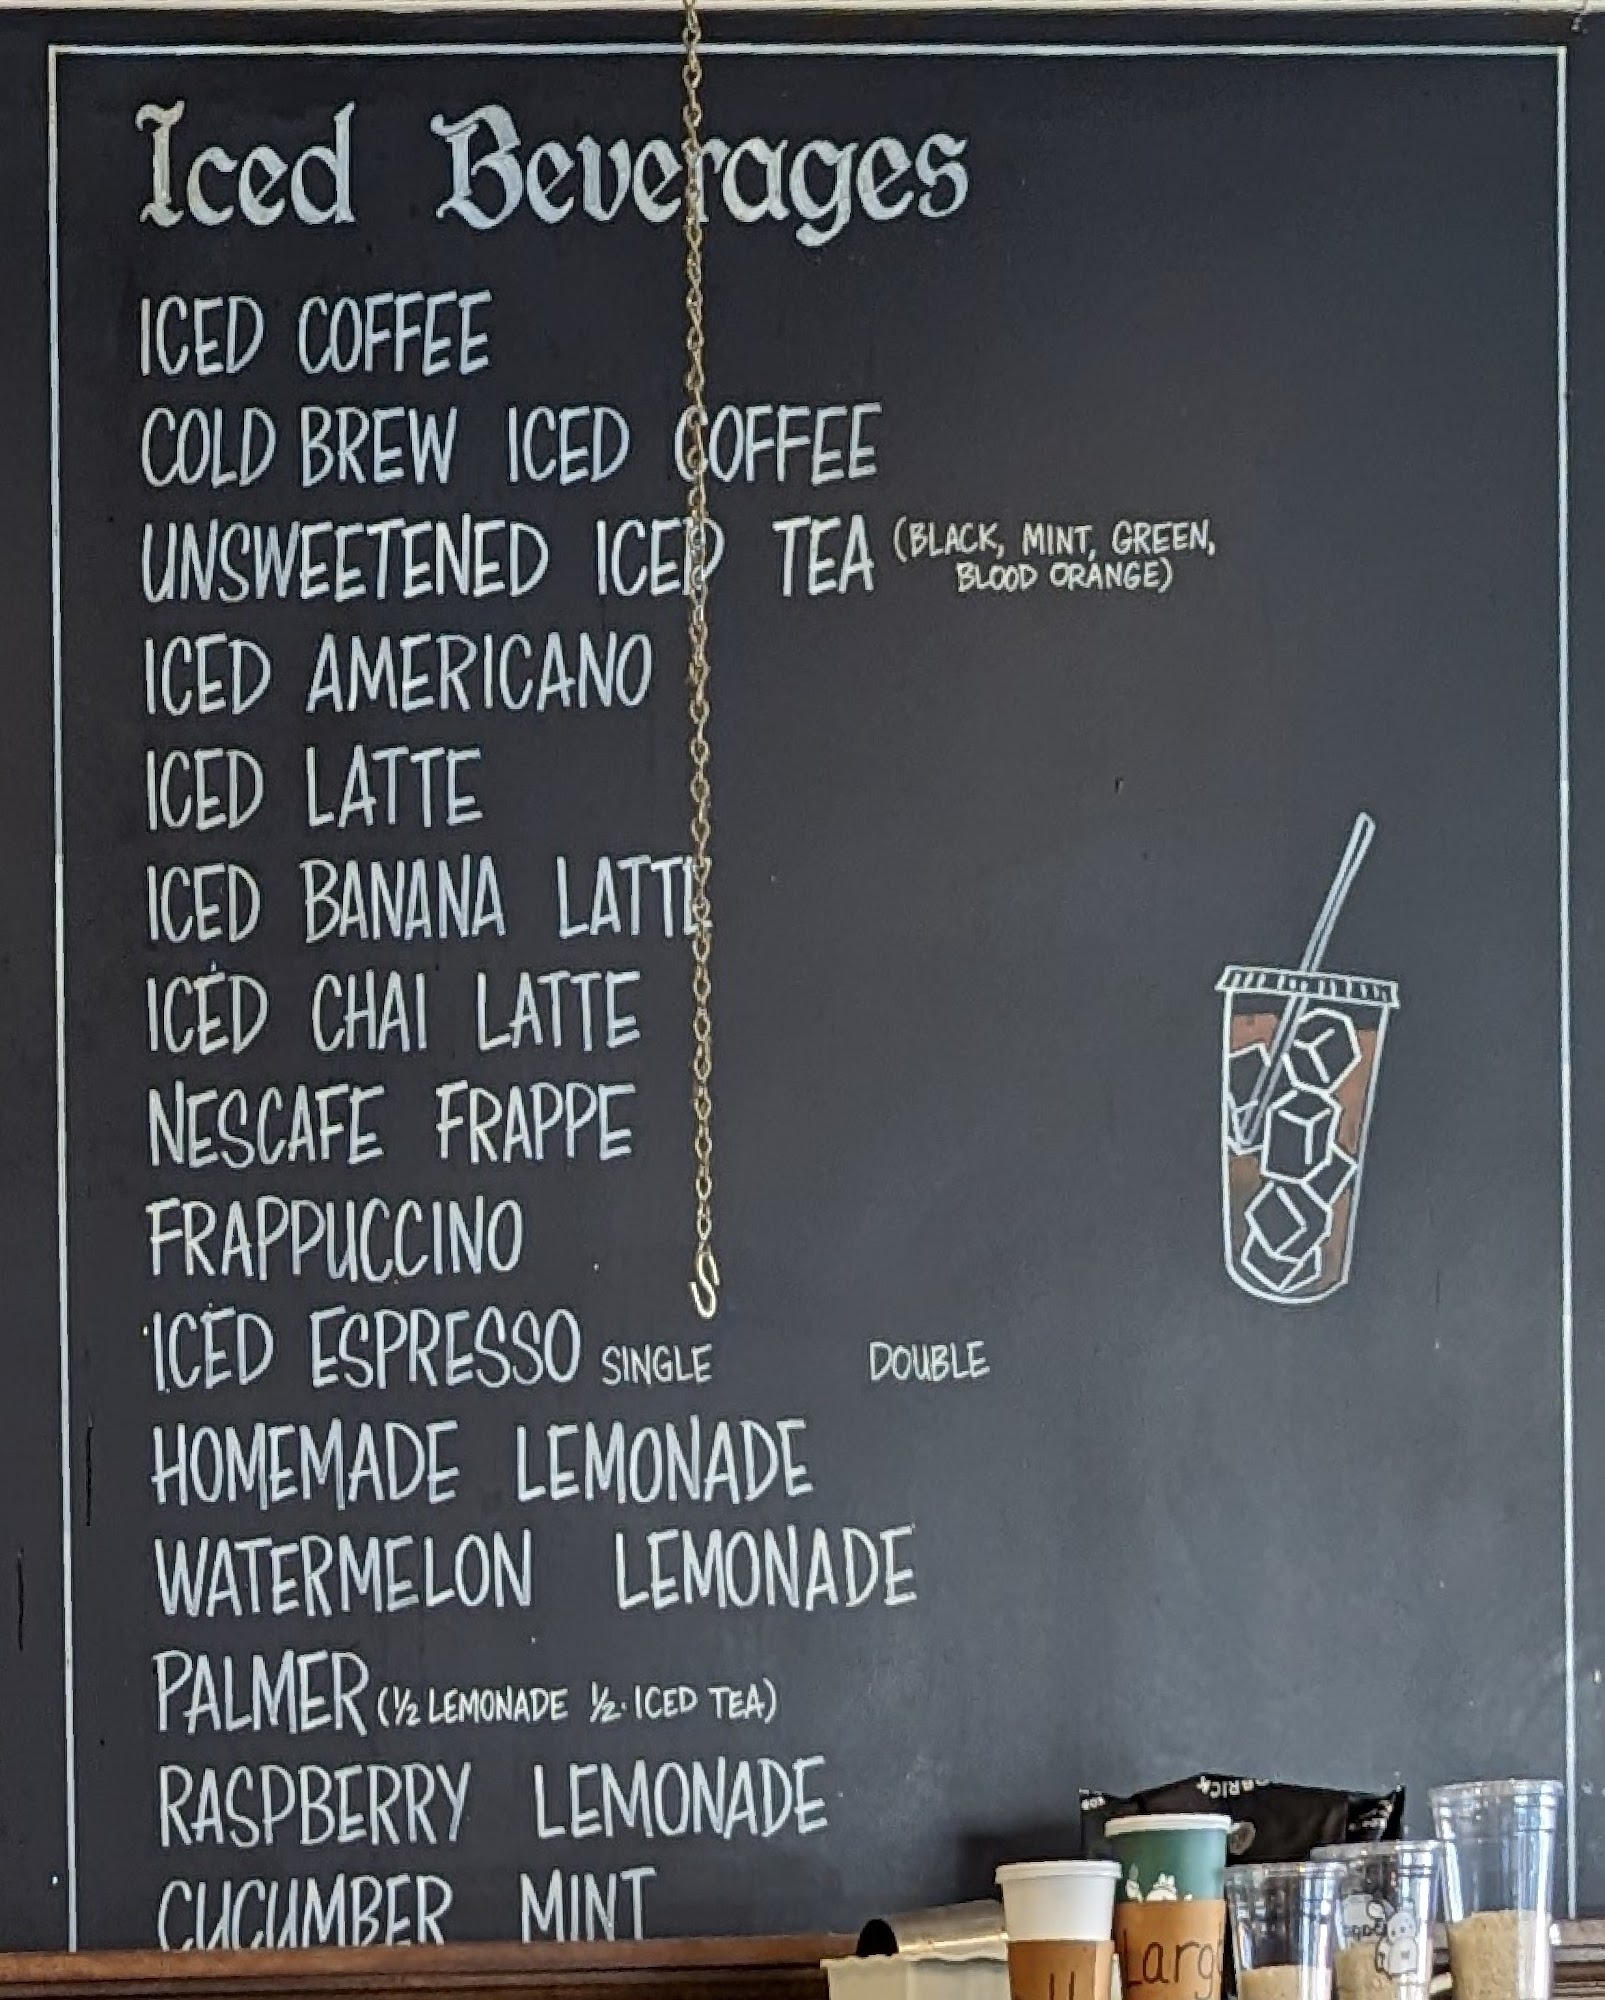 Iced Beverages
ICED COFFEE
COLD BREW ICED COFFEE
UNSWEETENED ICED TEA (BLACK, MINT, GREEN,
BLOOD ORANGE)
ICED AMERICANO
ICED LATTE
ICED BANANA LATTE
ICED CHAI LATTE
NESCAFE FRAPPE
FRAPPUCCINO
ICED ESPRESSO SINGLE DOUBLE
HOMEMADE LEMONADE
WATERMELON LEMONADE
PALMER (½ LEMONADE ½ ICED TEA)
RASPBERRY LEMONADE
CUCUMBER MINT